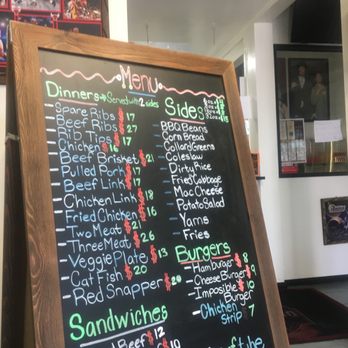 Menu
Dinners → Served with 2 sides
— Spare Ribs $17
— Beef Ribs $27
— Rib Tips $17
— Chicken $16
— Beef Brisket $21
— Pulled Pork $17
— Beef Link $17
— Chicken Link $18
— Fried Chicken $16
— Two Meat $21
— Three Meat $26
— Veggie Plate $13
— Cat Fish $20
— Red Snapper $20
Sides
— BBQ Beans
— Corn Bread
— Collard Greens
— Coleslaw
— Dirty Rice
— Fried Cabbage
— Mac Cheese
— Potato Salad
— Yams
— Fries
Burgers
— Hamburger $8
— Cheese Burger $9
— Imposible $10
Burger
— Chicken $7
Strip
Sandwiches
Beef $12